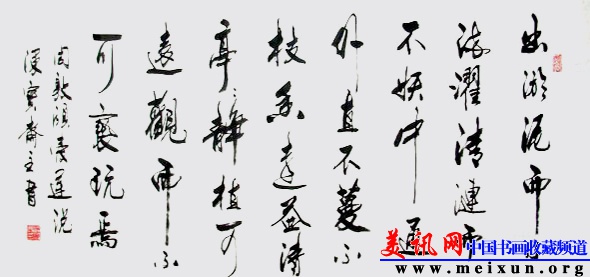 出淤泥而不
染濯清漣而
不妖中通
外直不蔓不
枝香遠益清
亭々靜植可
遠觀而不
可褻玩焉
周敦頤愛蓮說
齋主書
美訊网 中国书画收藏频道
www.meixun.org